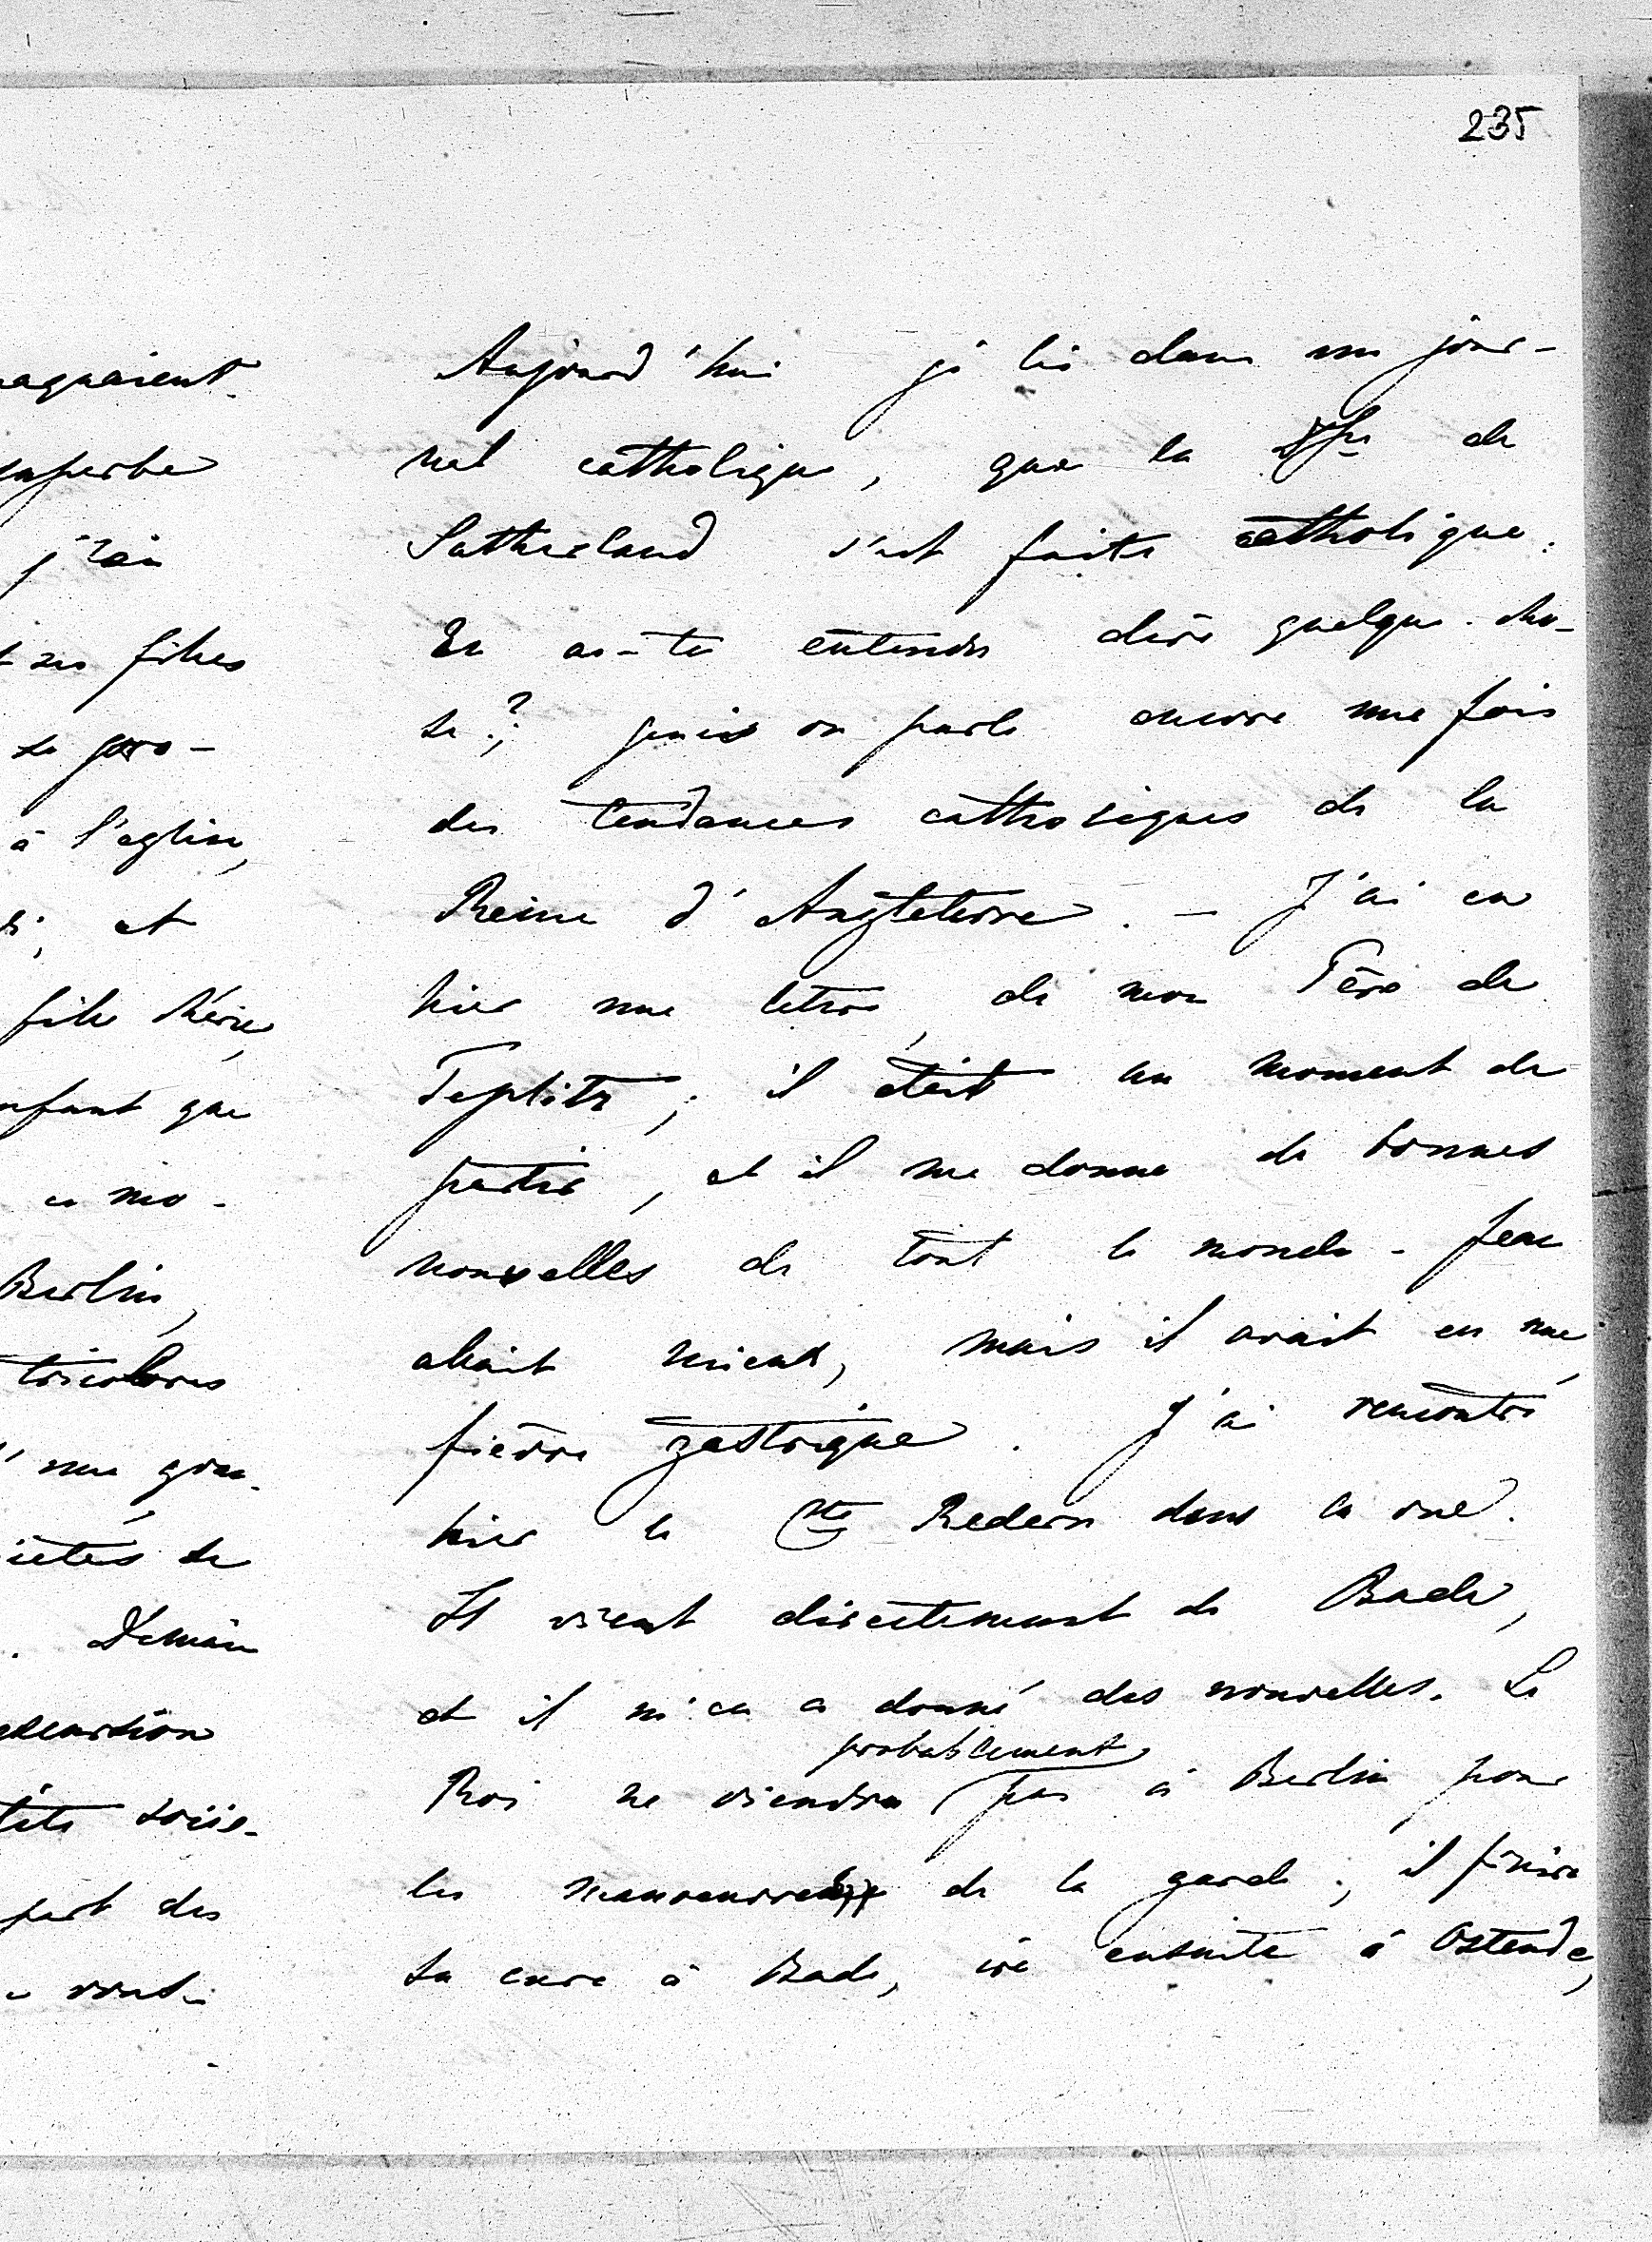 235
Aujourd'hui je lis dans un jour-
nal catholique, que la Dsse de
Suttherland s'est faite catholique.
En as-tu entendu dire quelque cho-
se? puis on parle encore une fois
des tendances catholiques de la
Reine d'Angleterre. – J'ai eu
hier une lettre, de mon Père de
Teplitz; il était au moment de
partir, et il me donne de bonnes
nouvelles de tout le monde - Jean
allait mieux, mais il avait eu une
fièvre gastrique. J'ai rencontré
hier le Cte Redern dans la rue.
Il vient directement de Bade,
et il m'en a donné des nouvelles. Le
probablement
Roi ne viendra pas à Berlin pour
les manoeuvres de la garde; il finira
sa cure à Bade, ira ensuite à Ostende,
superbe
j'ai
filles
se pro-
à l'eglise,
et
fille chérie,
enfant que
ce mo-
Berlin,
tricolores
une gran-
se
. Demain
part des